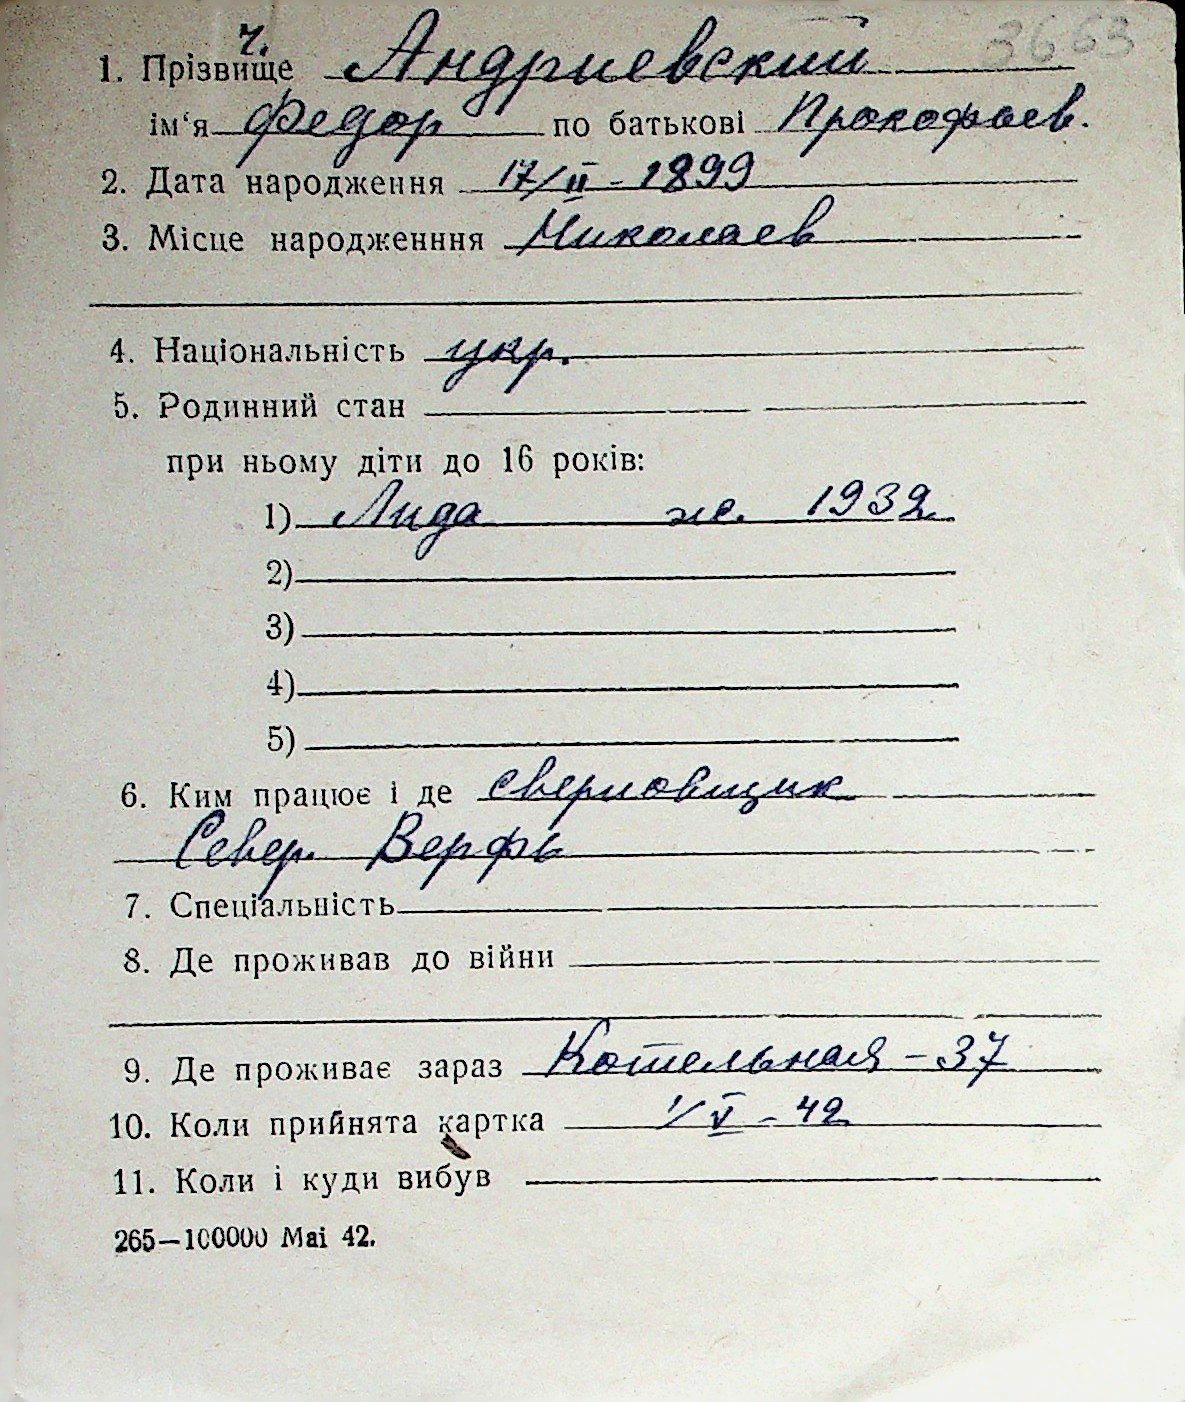 ч. 3663
1. Прізвище Андриевский
ім‘я Федор по батькові Прокофьев.
2. Дата народження 17/II - 1899
3. Місце народженння Николаев
4. Національність укр.
5. Родинний стан
при ньому діти до 16 років:
1) Лида ж. 1932
2)
3)
4)
5)
6. Ким працює і де сверловщик
Север. Верфь
7. Спеціальність
8. Де проживав до війни
9. Де проживає зараз Котельная - 37
10. Коли прийнята картка 1/V - 42
11. Коли і куди вибув
265—100000 Mai 42.